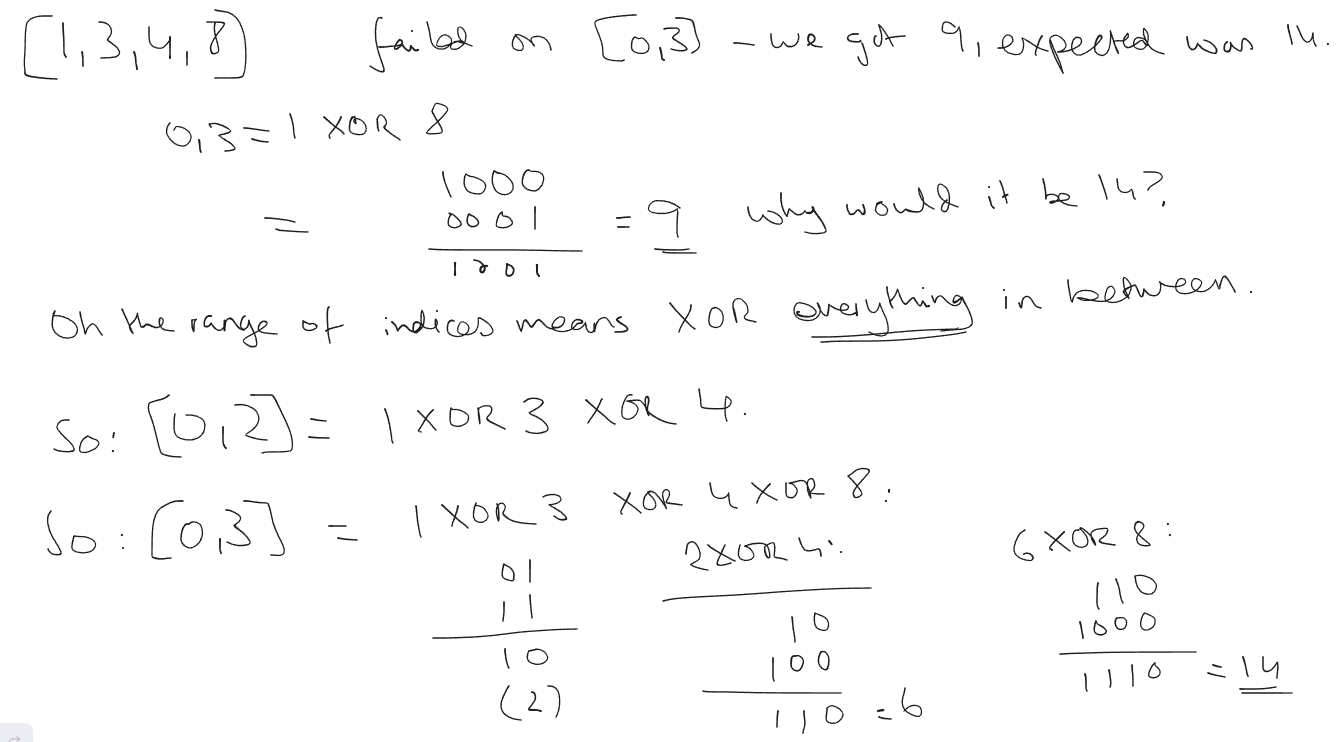 [1,3,4,8] failed on [0,3] - we got 9, expected was 14.
0,3 = 1 XOR 8
1000
= 0001 = 9 why would it be 14?
1001
Oh the range of indices means XOR everything in between.
So: [0,2] = 1 XOR 3 XOR 4.
So: [0,3] = 1 XOR 3 XOR 4 XOR 8:
01
11
10
(2)
2 XOR 4:
10
100
110 = 6
6 XOR 8:
110
1000
1110 = 14